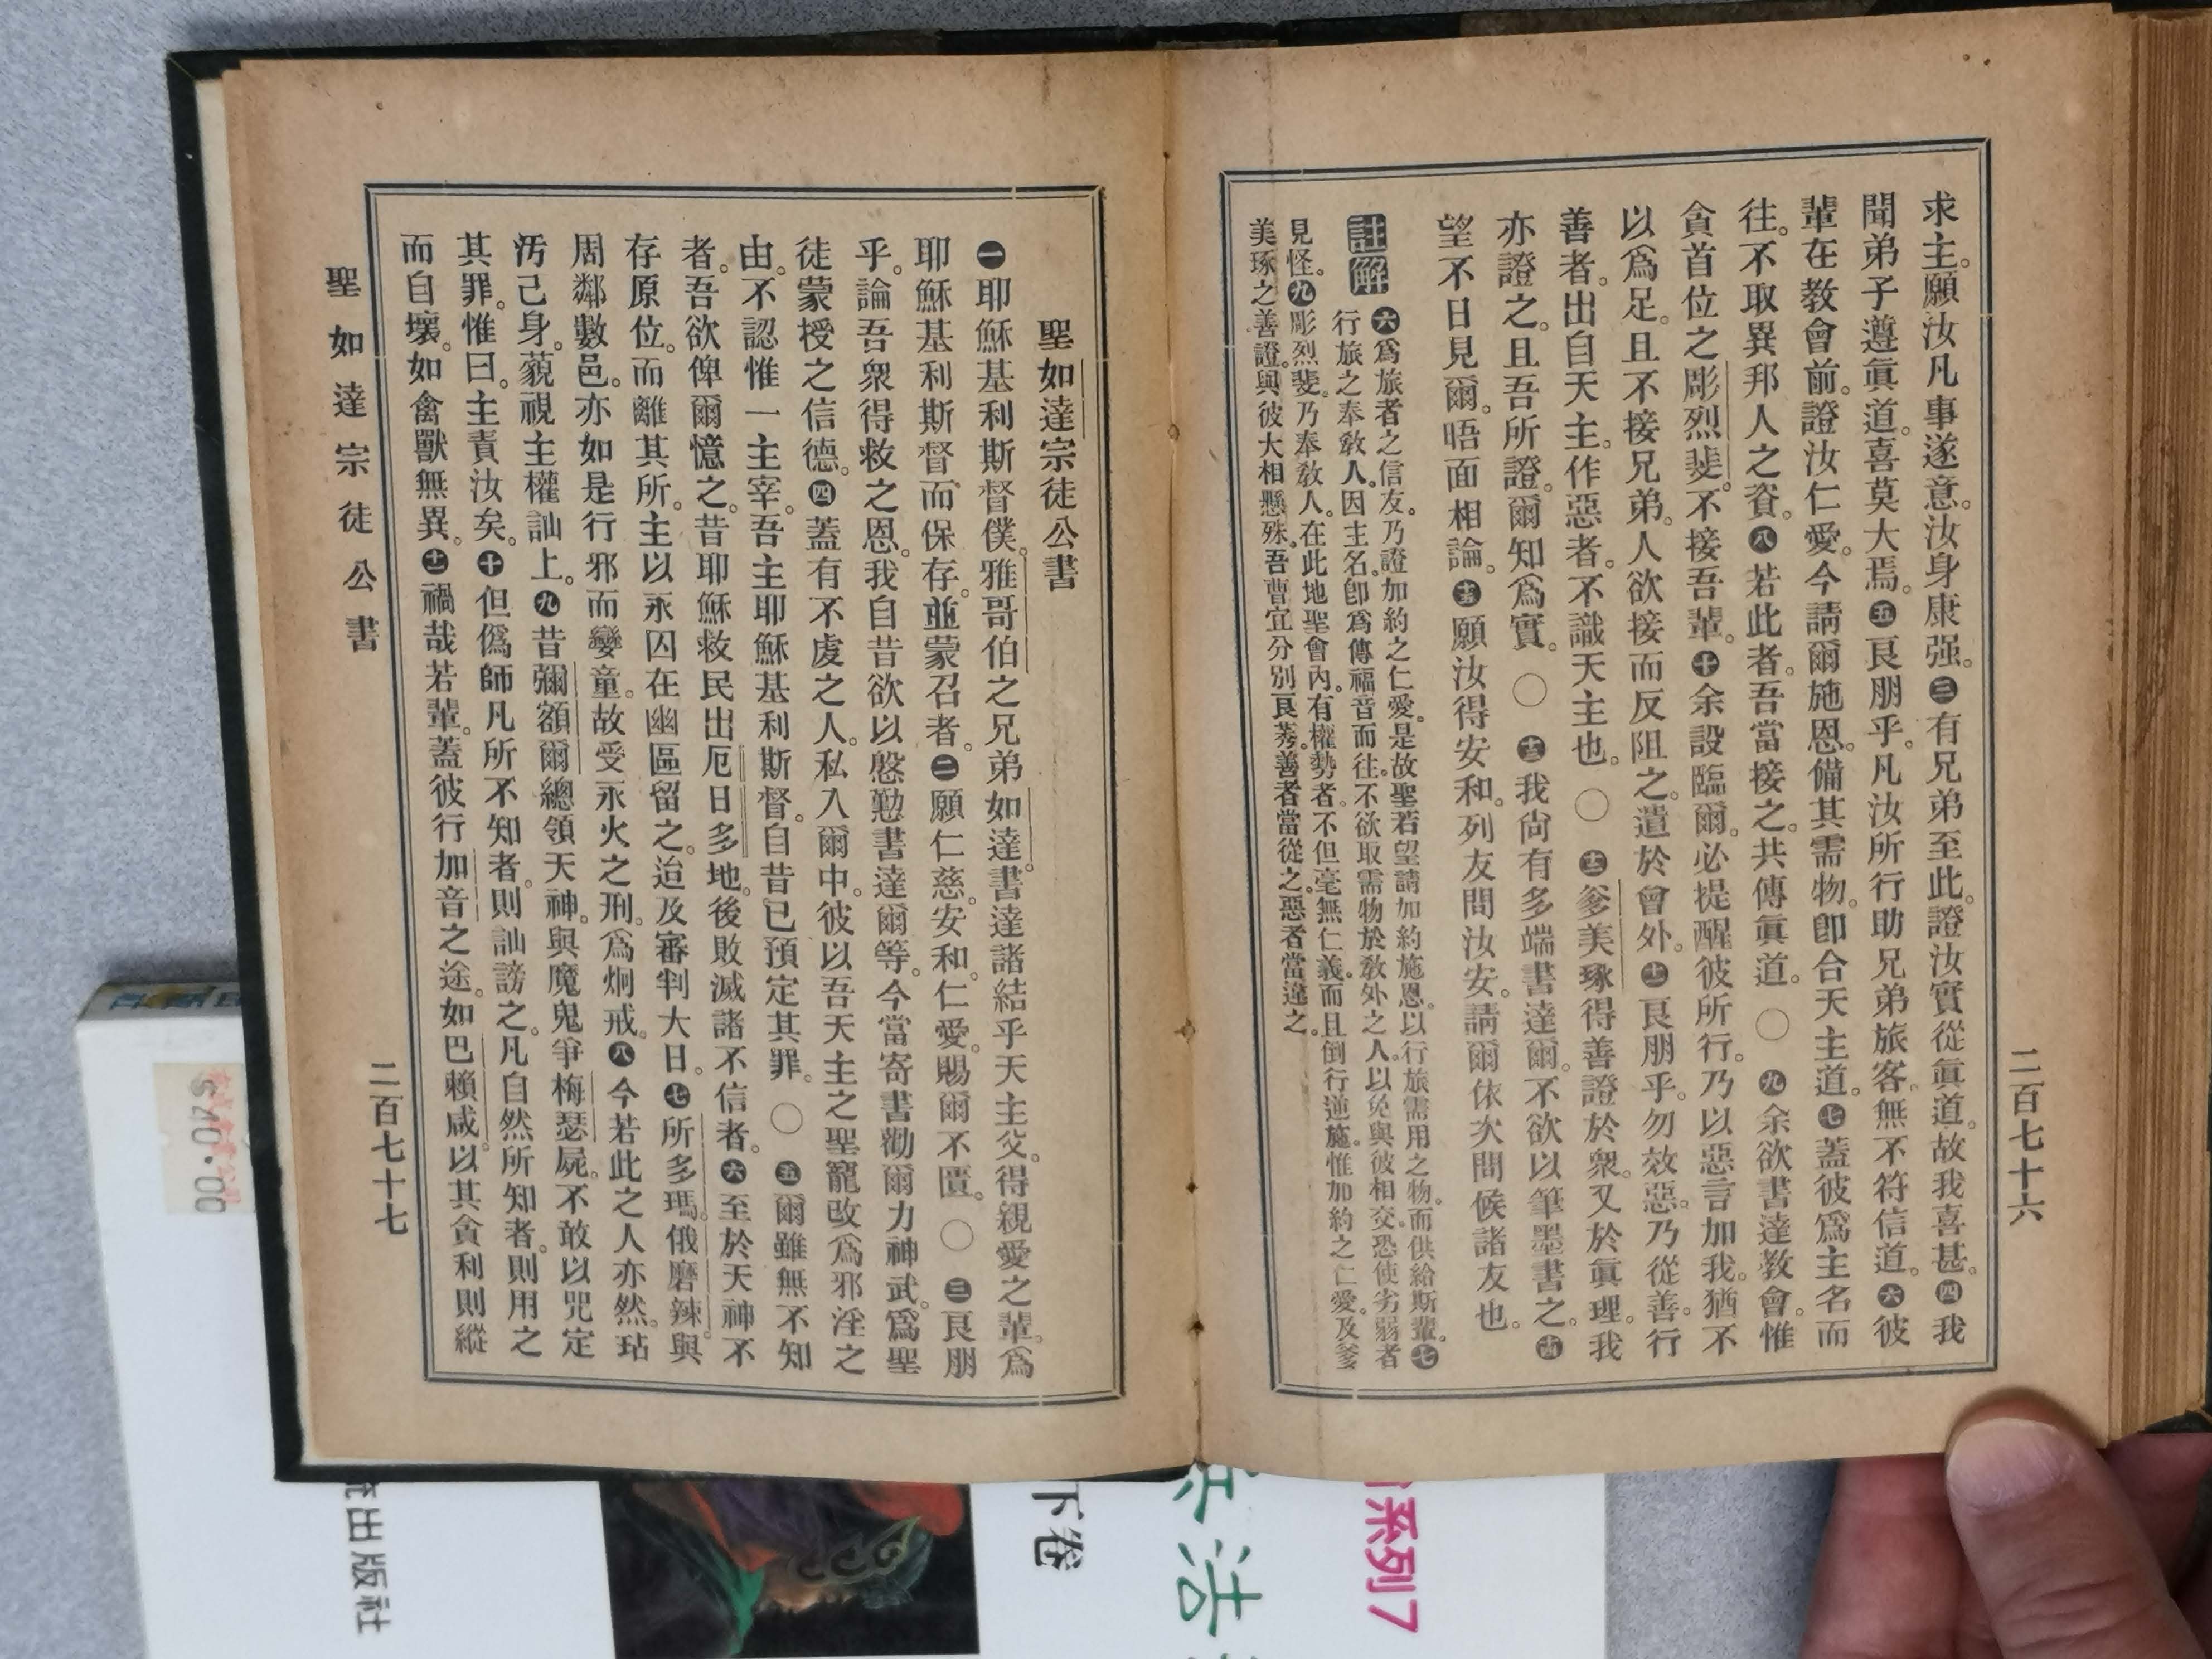 求主。願汝凡事遂意。汝身康强。㊂有兄弟至此。證汝實從眞道。故我喜甚。㊃我
聞弟子遵眞道。喜莫大焉。㊄良朋乎。凡汝所行助兄弟旅客。無不符信道。㊅彼
輩在教會前。證汝仁愛。今請爾施恩。備其需物。卽合天主道。㊆蓋彼爲主名而
往。不取異邦人之資。㊇若此者。吾當接之。共傳眞道。〇㊈余欲書達教會。惟
貪首位之彫烈斐。不接吾輩。㊉余設臨爾。必提醒彼所行。乃以惡言加我。猶不
以爲足。且不接兄弟。人欲接而反阻之。遣於會外。⓫良朋乎。勿效惡。乃從善。行
善者。出自天主。作惡者。不識天主也。〇⓬爹美琢得善證於衆。又於眞理。我
亦證之。且吾所證。爾知爲實。〇⓭我尙有多端書達爾。不欲以筆墨書之。⓮
望不日見爾。晤面相論。⓯願汝得安和。列友問汝安。請爾依次問候諸友也。
註解 ㊅爲旅者之信友。乃證加約之仁愛。是故聖若望請加約施恩。以行旅需用之物。而供給斯輩。㊆
行旅之奉敎人。因主名。卽爲傳福音而往。不欲取需物於敎外之人。以免與彼相交。恐使劣弱者
見怪。㊈彫烈斐。乃奉敎人。在此地聖會內。有權勢者。不但毫無仁義。而且倒行逆施。惟加約之仁愛。及爹
美琢之善證。與彼大相懸殊。吾曹宜分別良莠。善者當從之。惡者當違之。
二百七十六
聖如達宗徒公書
㊀耶穌基利斯督僕。雅哥伯之兄弟如達。書達諸結乎天主父。得親愛之輩。爲
耶穌基利斯督而保存。並蒙召者。㊁願仁慈。安和。仁愛。賜爾不匱。〇㊂良朋
乎。論吾衆得救之恩。我自昔欲以慇懃書達爾等。今當寄書勸爾力神武。爲聖
徒蒙授之信德。㊃蓋有不虔之人。私入爾中。彼以吾天主之聖寵改爲邪淫之
由。不認惟一主宰。吾主耶穌基利斯督。自昔已預定其罪。〇㊄爾雖無不知
者。吾欲俾爾憶之。昔耶穌救民出厄日多地。後敗滅諸不信者。㊅至於天神不
存原位。而離其所。主以永囚在幽區留之。迨及審判大日。㊆所多瑪。俄磨辣。與
周鄰數邑。亦如是行邪而孌童。故受永火之刑。爲炯戒。㊇今若此之人亦然。玷
汚己身。藐視主權訕上。㊈昔彌額爾總領天神。與魔鬼爭梅瑟屍。不敢以咒定
其罪。惟曰。主責汝矣。㊉但僞師凡所不知者。則訕謗之。凡自然所知者。則用之
而自壞。如禽獸無異。⓫禍哉若輩。蓋彼行加音之途。如巴賴咸。以其貪利則縱
聖如達宗徒公書
二百七十七
出版社
下卷
法
系列7
$40.00